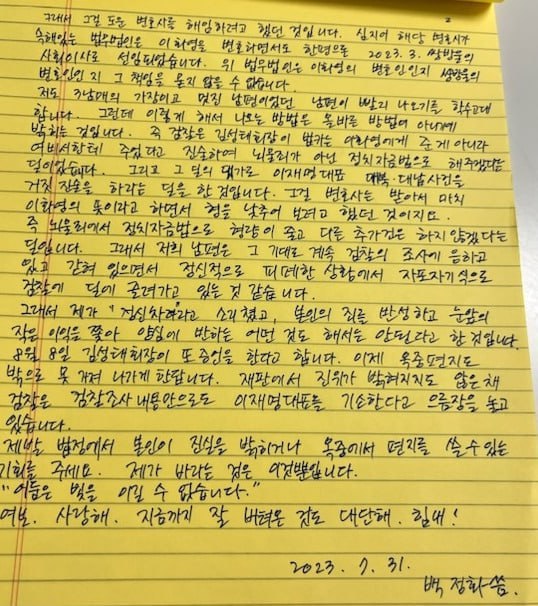 2
그래서 그걸 또문 변호사를 해임하려고 했던 것입니다. 심지어 해당 변호사가
속해있는 법무법인은 이화영을 변호하면서도 한편으로 2023. 3. 쌍방울의
사외이사로 선임되었습니다. 위 법무법인은 이화영의 변호인인지 쌍방울의
변호인인지 그 책임을 묻지 않을 수 없습니다.
저도 3남매의 가장이고 멋진 남편이었던 남편이 빨리 나오기를 학수고대
합니다. 그런데 이렇게 해서 나오는 방법은 올바른 방법이 아니기에
밝히는 것입니다. 즉 검찰은 김성태회장이 법카는 이화영에게 준 게 아니라
여비서한테 주었다고 진술하여 뇌물죄가 아닌 정치자금법으로 해주겠다는
딜이었습니다. 그리고 그 딜의 댓가로 이재명대표 대북·대납사건을
거짓 진술을 하라는 딜을 한 것입니다. 그걸 변호사는 받아서 마치
이화영의 뜻이라고 하면서 형을 낮추어 보려고 했던 것이지요.
즉 뇌물죄에서 정치자금법으로 형량이 줄고 다른 추가건은 하지 않겠다는
딜입니다. 그래서 저희 남편은 그 기대로 계속 검찰의 조사에 응하고
있고 갇혀 있으면서 정신적으로 피폐한 상황에서 자포자기식으로
검찰에 딜에 끌려가고 있는 것 같습니다.
그래서 제가 "정신차려라"라고 소리쳤고, 본인의 죄를 반성하고 눈앞의
작은 이익을 쫓아 양심에 반하는 어떤 것도 해서는 안된다고 한 것입니다.
8월 8일 김성태회장이 또 증언을 한다고 합니다. 이제 옥중편지도
밖으로 못 가져 나가게 한답니다. 재판에서 진위가 밝혀지지도 않은 채
검찰은 검찰조사 내용만으로도 이재명대표를 기소한다고 으름장을 놓고
있습니다.
제발 법정에서 본인이 진실을 밝히거나 옥중에서 편지를 쓸 수 있는
기회를 주세요. 제가 바라는 것은 이것뿐입니다.
"어둠은 빛을 이길 수 없습니다."
여보. 사랑해. 지금까지 잘 버텨온 것도 대단해. 힘내!
2023. 7. 31.
백 정화 씀.